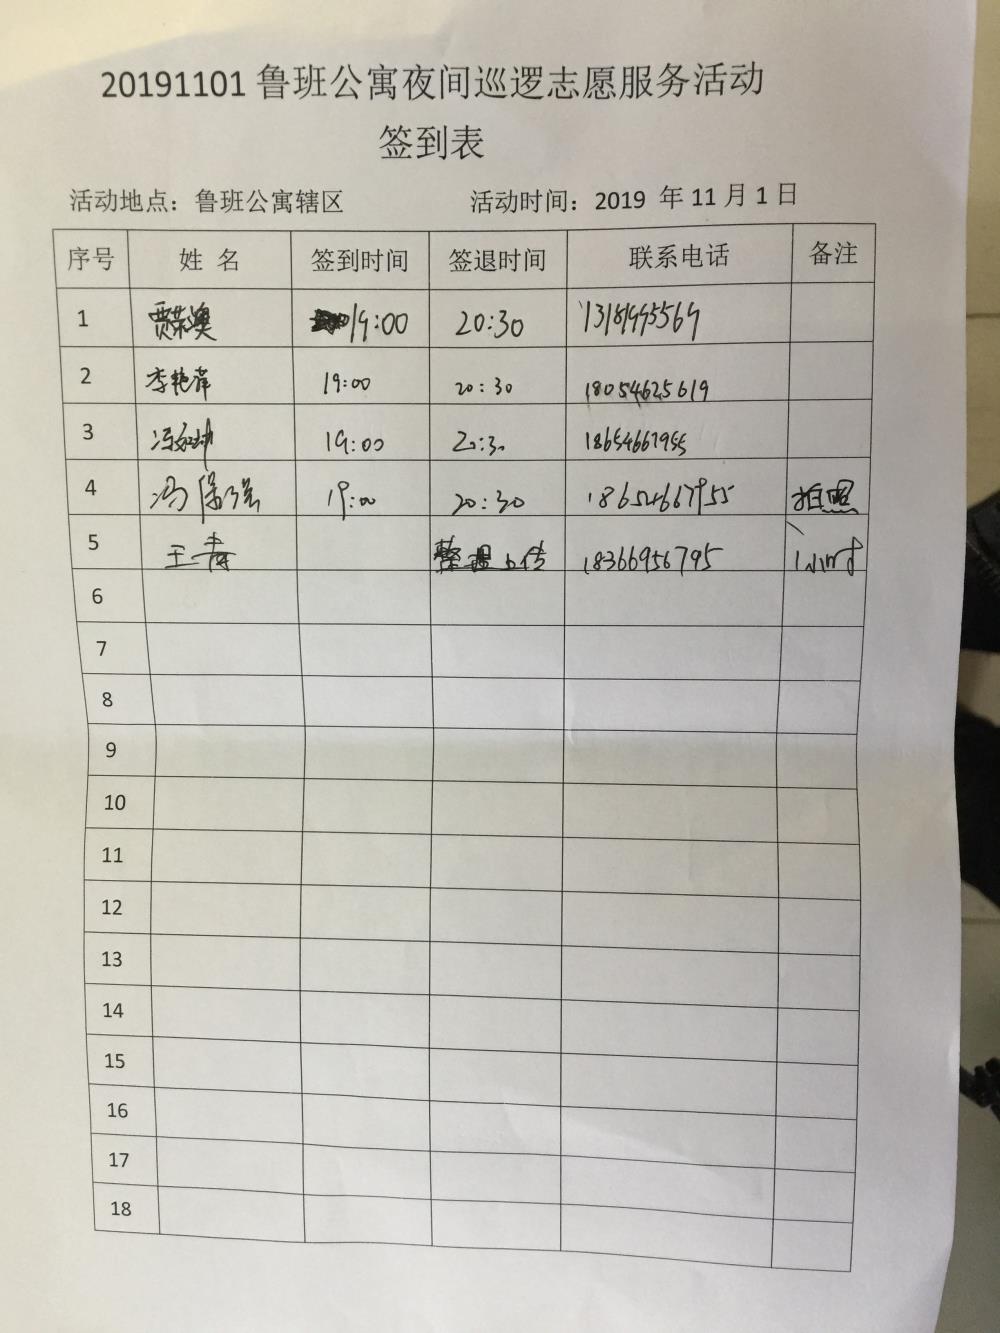 20191101 鲁班公寓夜间巡逻志愿服务活动
签到表
活动地点：鲁班公寓辖区 活动时间：2019 年 11 月 1 日
序号 姓 名 签到时间 签退时间 联系电话 备注
1 贾荣奥 19:00 20:30
2 李艳萍 19:00 20:30 18054625619
3 冯 19:00 20:30 18654667955
4 冯保强 19:00 20:30 18654667955 拍照
5 王寿 整理上传 18366956795 1小时
6
7
8
9
10
11
12
13
14
15
16
17
18